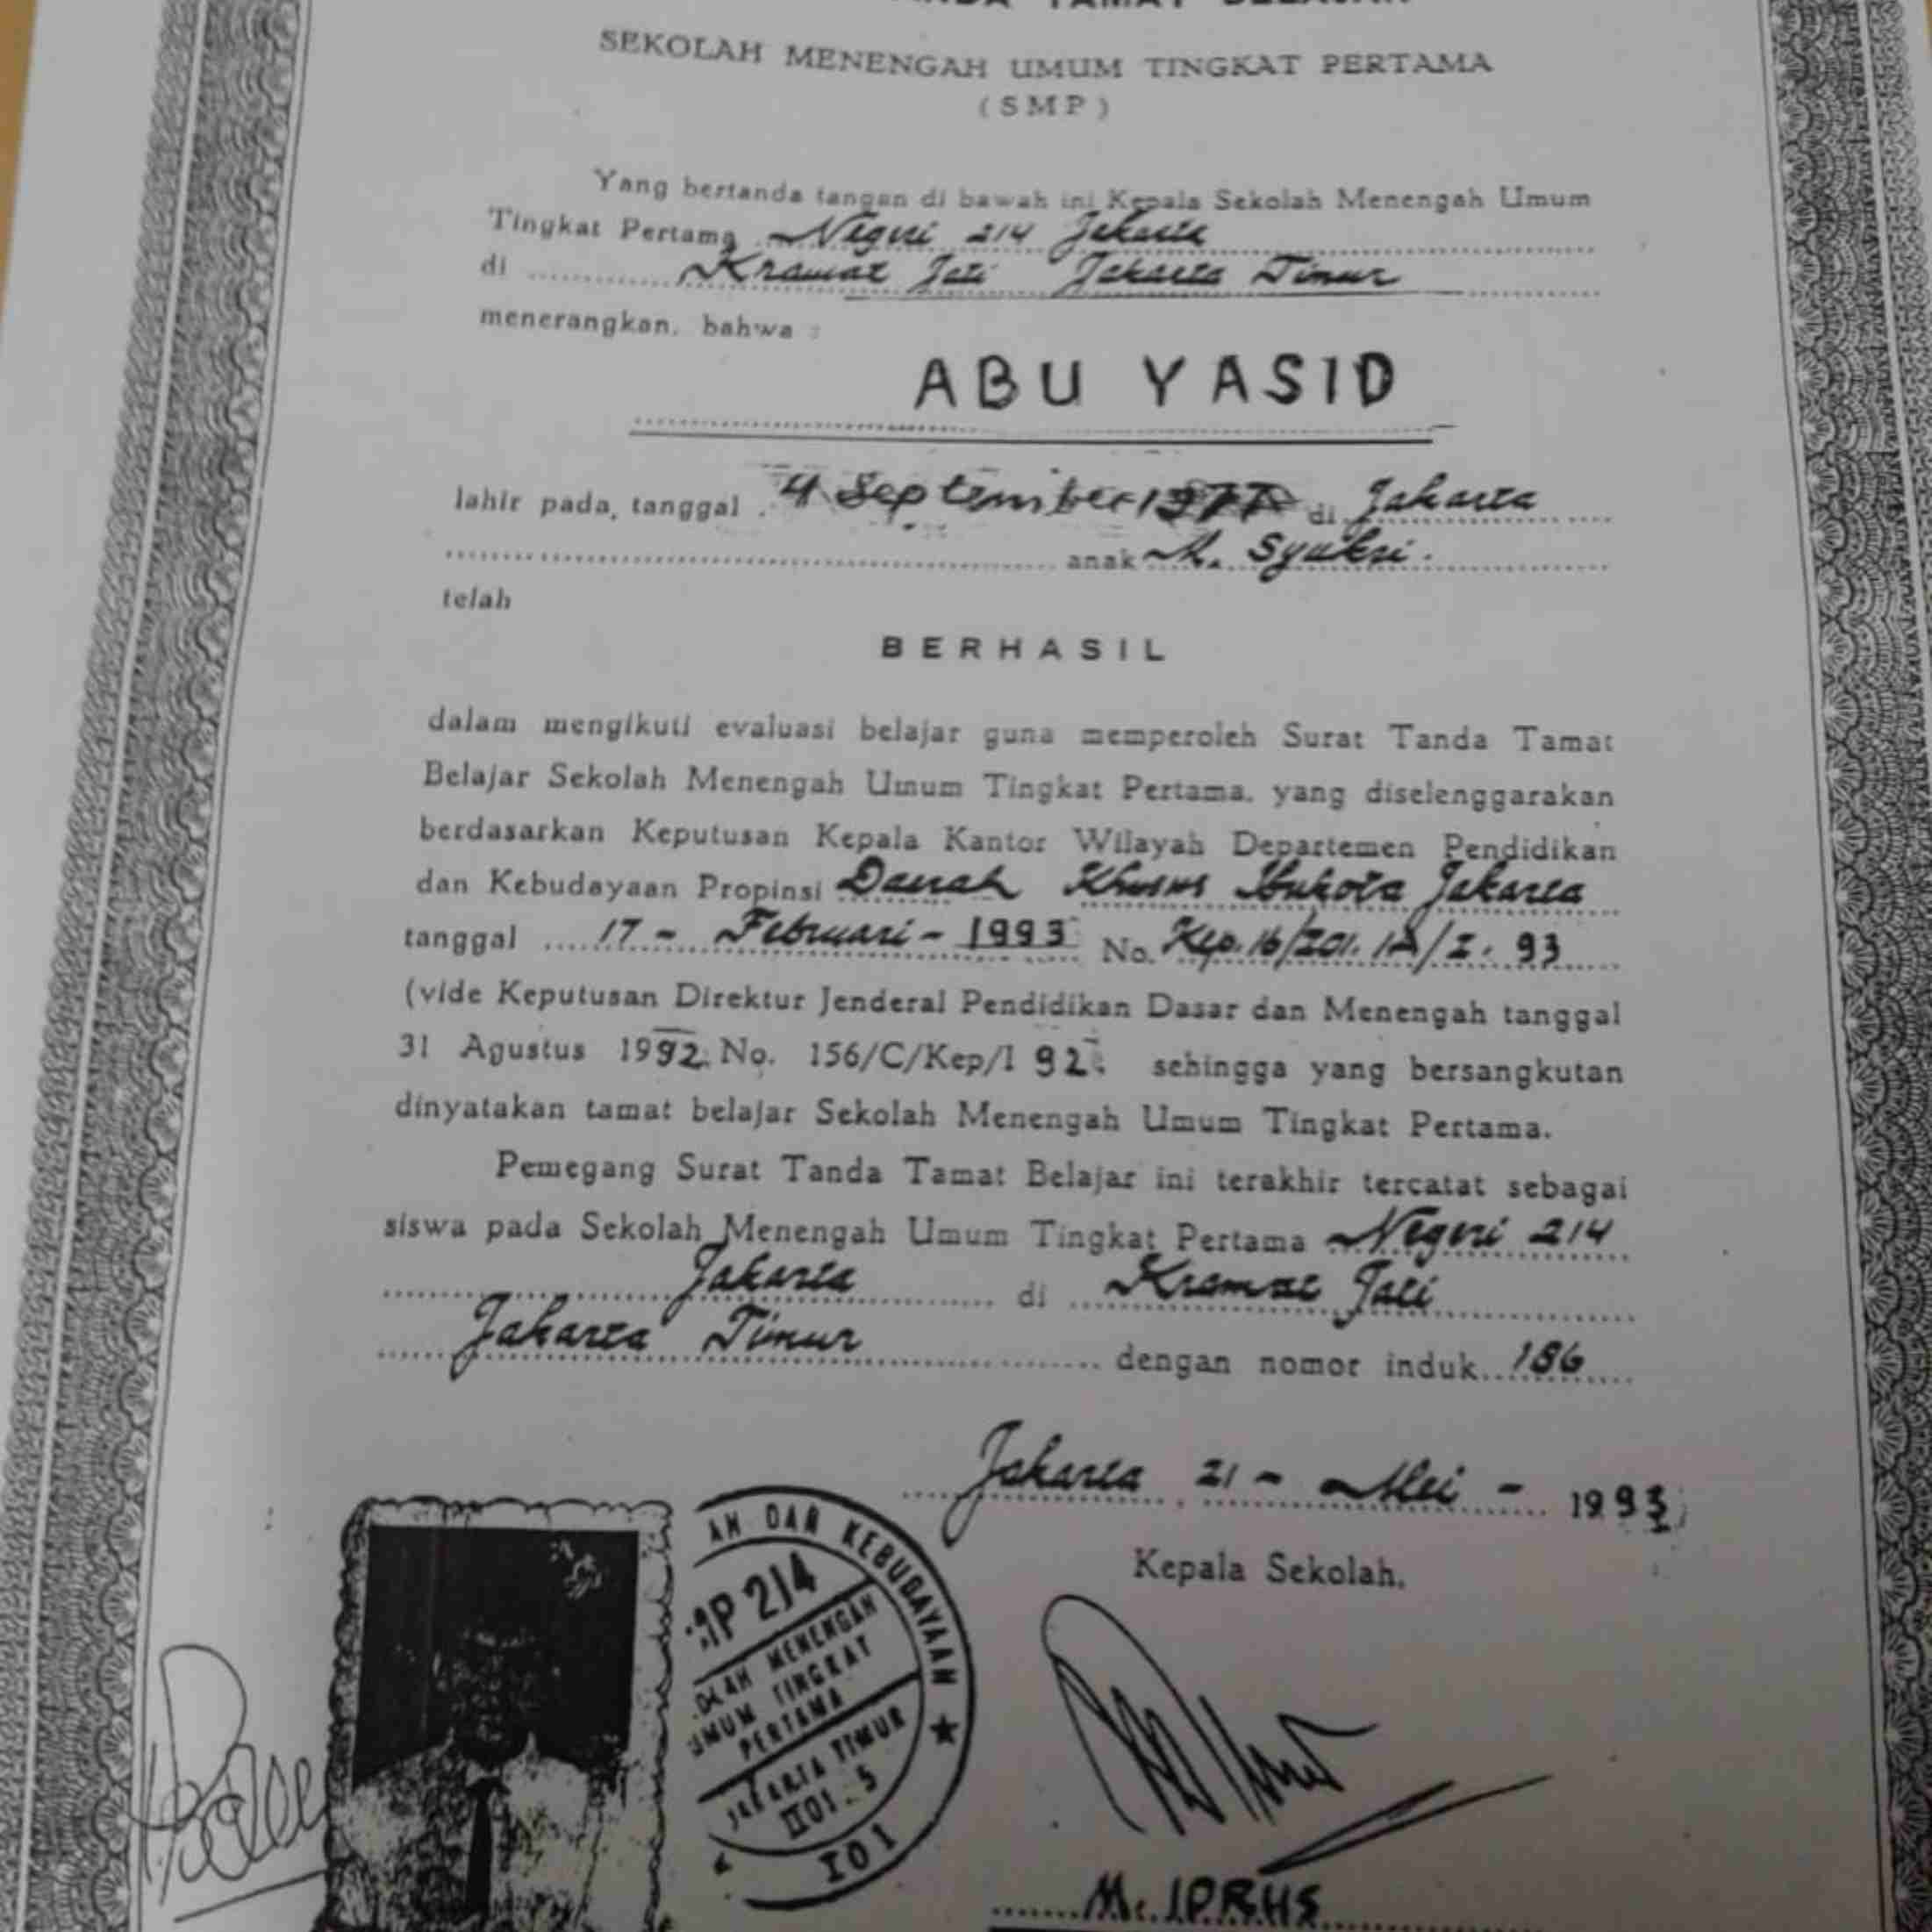 TANDA TAMAT BELAJAR
SEKOLAH MENENGAH UMUM TINGKAT PERTAMA
(SMP)
Yang bertanda tangan di bawah ini Kepala Sekolah Menengah Umum
Tingkat Pertama Negeri 214 Jakarta
di Kramat Jati Jakarta Timur
menerangkan, bahwa :
ABU YASID
lahir pada, tanggal 4 September 1977 di Jakarta
anak M. Syukri.
telah
BERHASIL
dalam mengikuti evaluasi belajar guna memperoleh Surat Tanda Tamat
Belajar Sekolah Menengah Umum Tingkat Pertama, yang diselenggarakan
berdasarkan Keputusan Kepala Kantor Wilayah Departemen Pendidikan
dan Kebudayaan Propinsi Daerah Khusus Ibukota Jakarta
tanggal 17 - Februari - 1993 No. Kep. 16/I01. /I. 93
(vide Keputusan Direktur Jenderal Pendidikan Dasar dan Menengah tanggal
31 Agustus 1992 No. 156/C/Kep/I 92. sehingga yang bersangkutan
dinyatakan tamat belajar Sekolah Menengah Umum Tingkat Pertama.
Pemegang Surat Tanda Tamat Belajar ini terakhir tercatat sebagai
siswa pada Sekolah Menengah Umum Tingkat Pertama Negeri 214
Jakarta di Kramat Jati
Jakarta Timur dengan nomor induk 186
Jakarta, 21 - Mei - 1993
Kepala Sekolah,
AN DAN KEBUDAYAAN
MP 214
OLAH MENENGAH
UMUM TINGKAT
PERTAMA
JAKARTA TIMUR
II01 . 5
I01